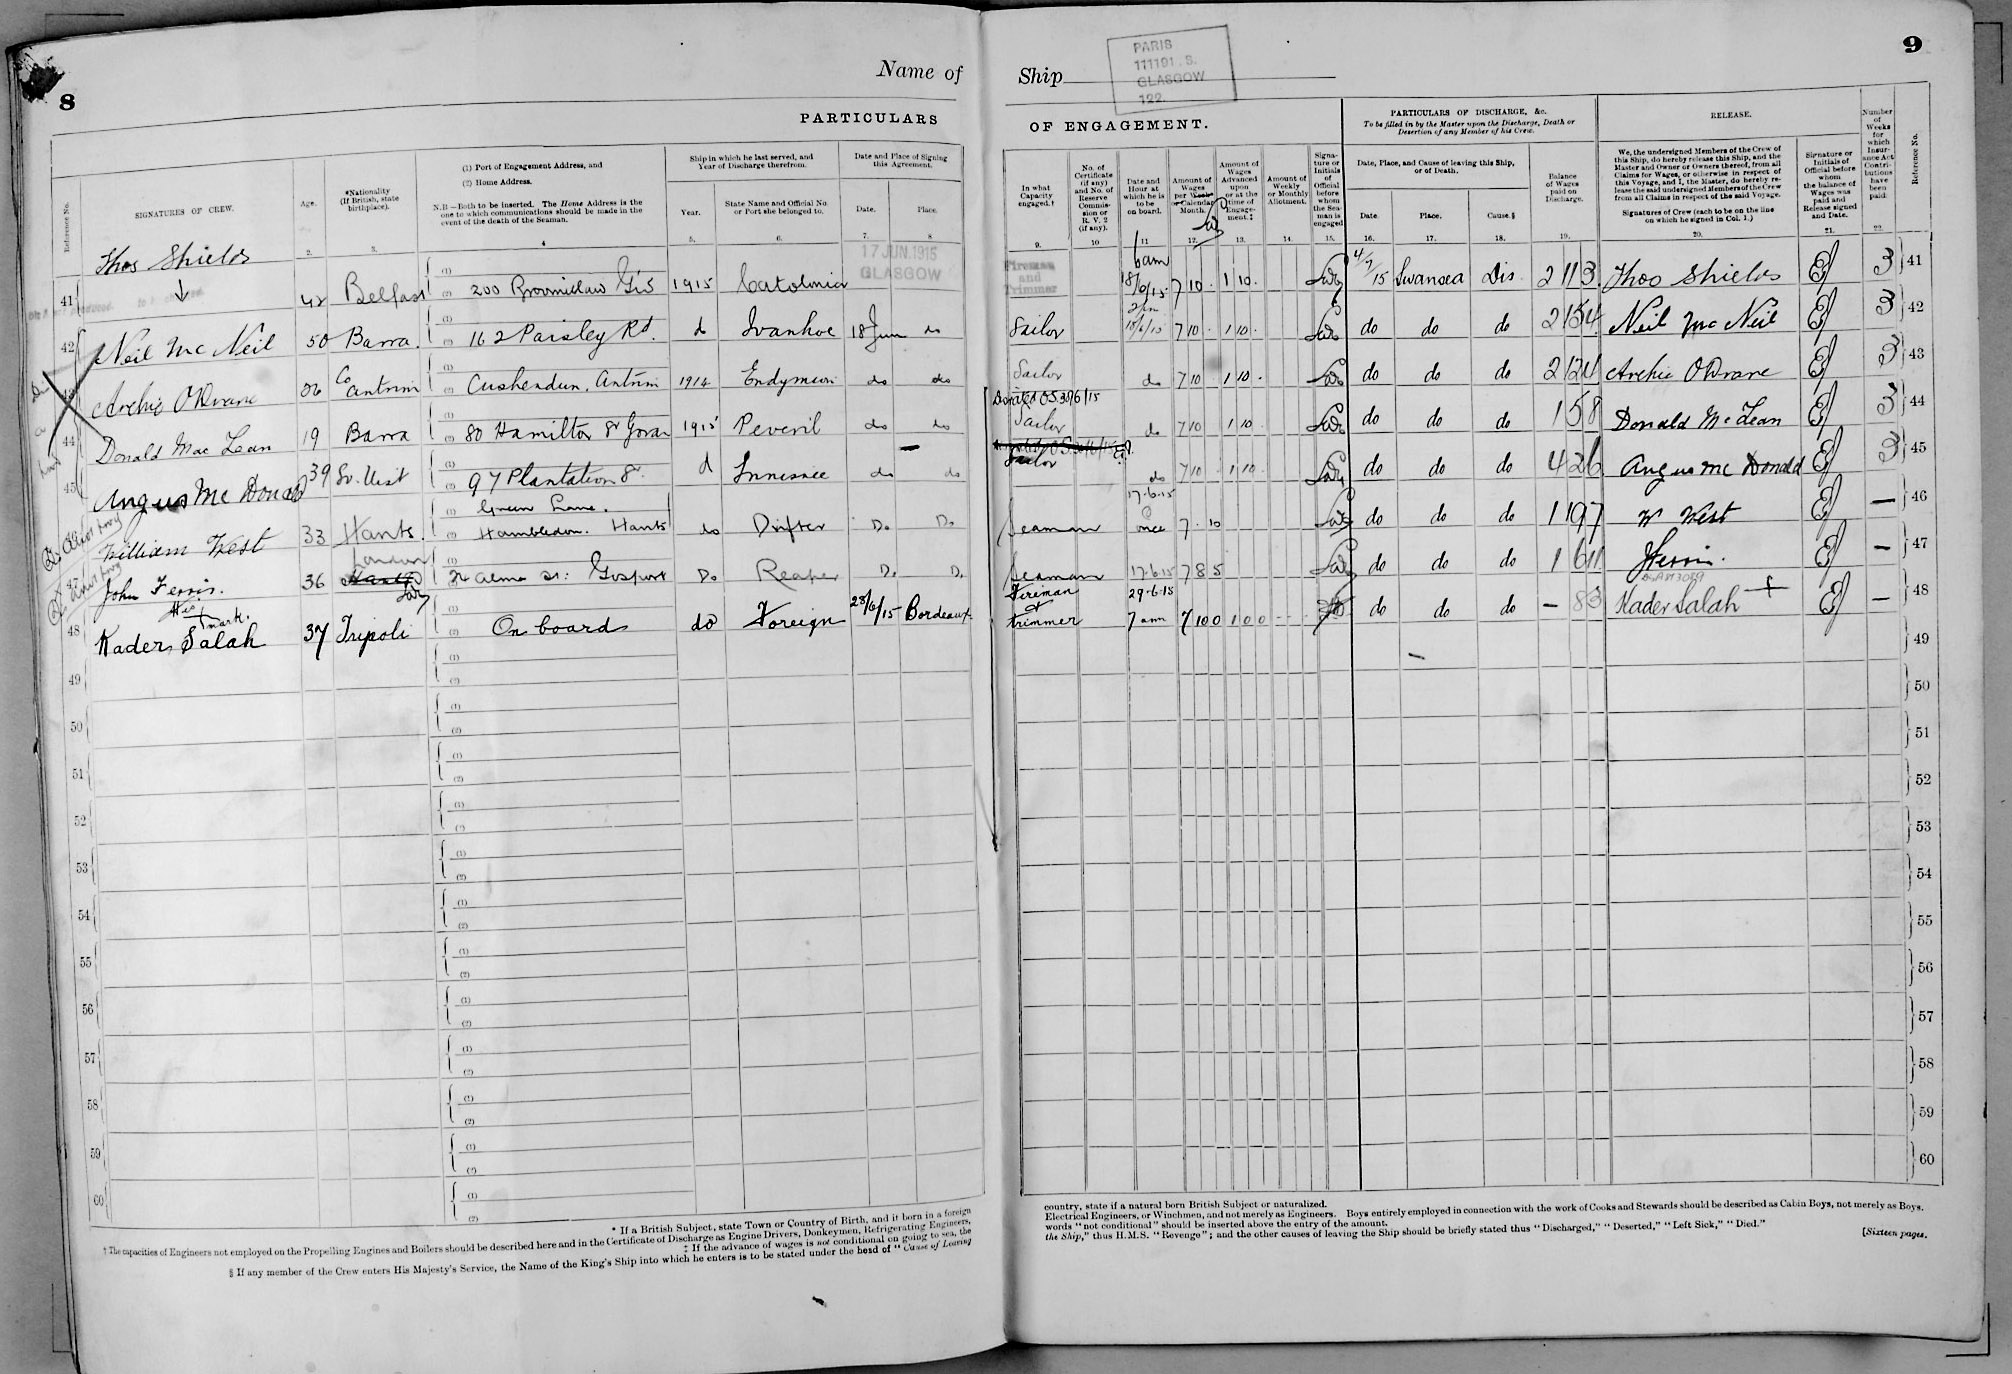 8
Name of
PARTICULARS
Reference No.
SIGNATURES OF CREW.
Age.
*Nationality
(If British, state
birthplace).
(1) Port of Engagement Address, and
(2) Home Address.
N.B.—Both to be inserted. The Home Address is the
one to which communications should be made in the
event of the death of the Seaman.
Ship in which he last served, and
Year of Discharge therefrom.
Year.
State Name and Official No.
or Port she belonged to.
Date and Place of Signing
this Agreement.
Date.
Place.
2. 3. 4 5. 6. 7. 8
17 JUN 1915
GLASGOW
41 Thos Shields 42 Belfast (1) (2) 200 Broomielaw Gls 1915
42 Neil Mc Neil 50 Barra. (1) (2) 162 Paisley Rd. do Ivanhoe 18 Jun do
43 Archie O'Drane Co Antrim (1) (2) Cushendun. Antrim 1914 Endymion do do
44 Donald Mac Lean 19 Barra (1) (2) 80 Hamilton St Govan 1915 Peveril do do
45 Angus Mc Donald 39 So. Uist (1) (2) 97 Plantation St. d Innesnee do do
William West 33 Hants. (1) Green Lane. (2) Hambledon. Hants do Drifter Do Do
47 John Ferris. 36 London (1) (2) Alma St: Gosport Do Reaper Do Do
His
mark.
48 Kader Salah 37 Tripoli (1) (2) On board do Foreign 28/6/15 Bordeaux
49 (1) (2)
50 (1) (2)
51 (1) (2)
52 (1) (2)
53 (1) (2)
54 (1) (2)
55 (1) (2)
56 (1) (2)
57 (1) (2)
58 (1) (2)
59 (1) (2)
60 (1) (2)
* If a British Subject, state Town or Country of Birth, and if born in a foreign
† The capacities of Engineers not employed on the Propelling Engines and Boilers should be described here and in the Certificate of Discharge as Engine Drivers, Donkeymen, Refrigerating Engineers,
‡ If the advance of wages is not conditional on going to sea, the
§ If any member of the Crew enters His Majesty's Service, the Name of the King's Ship into which he enters is to be stated under the head of "Cause of Leaving
9
Ship
PARIS
111191. S.
GLASGOW
122.
OF ENGAGEMENT.
In what
Capacity
engaged.†
No. of
Certificate
(if any)
and No. of
Reserve
Commis-
sion or
R. V. 2
(if any).
Date and
Hour at
which he is
to be
on board.
Amount of
Wages
per Week
or Calendar
Month.
Amount of
Wages
Advanced
upon
or at the
time of
Engage-
ment.‡
Amount of
Weekly
or Monthly
Allotment.
Signa-
ture or
Initials
of
Official
before
whom
the Sea-
man is
engaged
PARTICULARS OF DISCHARGE, &c.
To be filled in by the Master upon the Discharge, Death or
Desertion of any Member of his Crew.
Date, Place, and Cause of leaving this Ship,
or of Death.
Date.
Place.
Cause.§
Balance
of Wages
paid on
Discharge.
RELEASE.
We, the undersigned Members of the Crew of
this Ship, do hereby release this Ship, and the
Master and Owner or Owners thereof, from all
Claims for Wages, or otherwise in respect of
this Voyage, and I, the Master, do hereby re-
lease the said undersigned Members of the Crew
from all Claims in respect of the said Voyage.
Signatures of Crew (each to be on the line
on which he signed in Col. 1.)
Signature or
Initials of
Official before
whom
the balance of
Wages was
paid and
Release signed
and Date.
Number
of
Weeks
for
which
Insur-
ance Act
Contri-
butions
have
been
paid.
Reference No.
9. 10 11 12. 13. 14. 15. 16. 17. 18. 19. 20. 21. 22.
Fireman
and
Trimmer
6am
18/6/15 7 10 . 1 10 . 4/7/15 Swansea Dis. 2 11 3 Thos Shields 3 41
Sailor 2pm 18/6/15 7 10 . 1 10 . do do do Neil McNeil 3 42
Sailor do 7 10 1 10 . do do do Archie O'Drane 3 43
Sailor do 7 10 1 10 . do do do 1 5 8 Donald McLean 3 44
Sailor do 7 10 . 1 10 . do do do 4 2 6 Angus Mc Donald 3 45
Seaman 17.6.15 once 7 . 10 do do do 1 19 7 W West — 46
Seaman 17.6.15 7 8 5 do do do J Ferris. — 47
Fireman
&
trimmer 29.6.15 7 am 7 10 0 1 0 0 do do do Kader Salah — 48
49
50
51
52
53
54
55
56
57
58
59
60
country, state if a natural born British Subject or naturalized.
Electrical Engineers, or Winchmen, and not merely as Engineers. Boys entirely employed in connection with the work of Cooks and Stewards should be described as Cabin Boys, not merely as Boys.
words "not conditional" should be inserted above the entry of the amount.
the Ship," thus H.M.S. "Revenge"; and the other causes of leaving the Ship should be briefly stated thus "Discharged," "Deserted," "Left Sick," "Died."
[Sixteen pages.